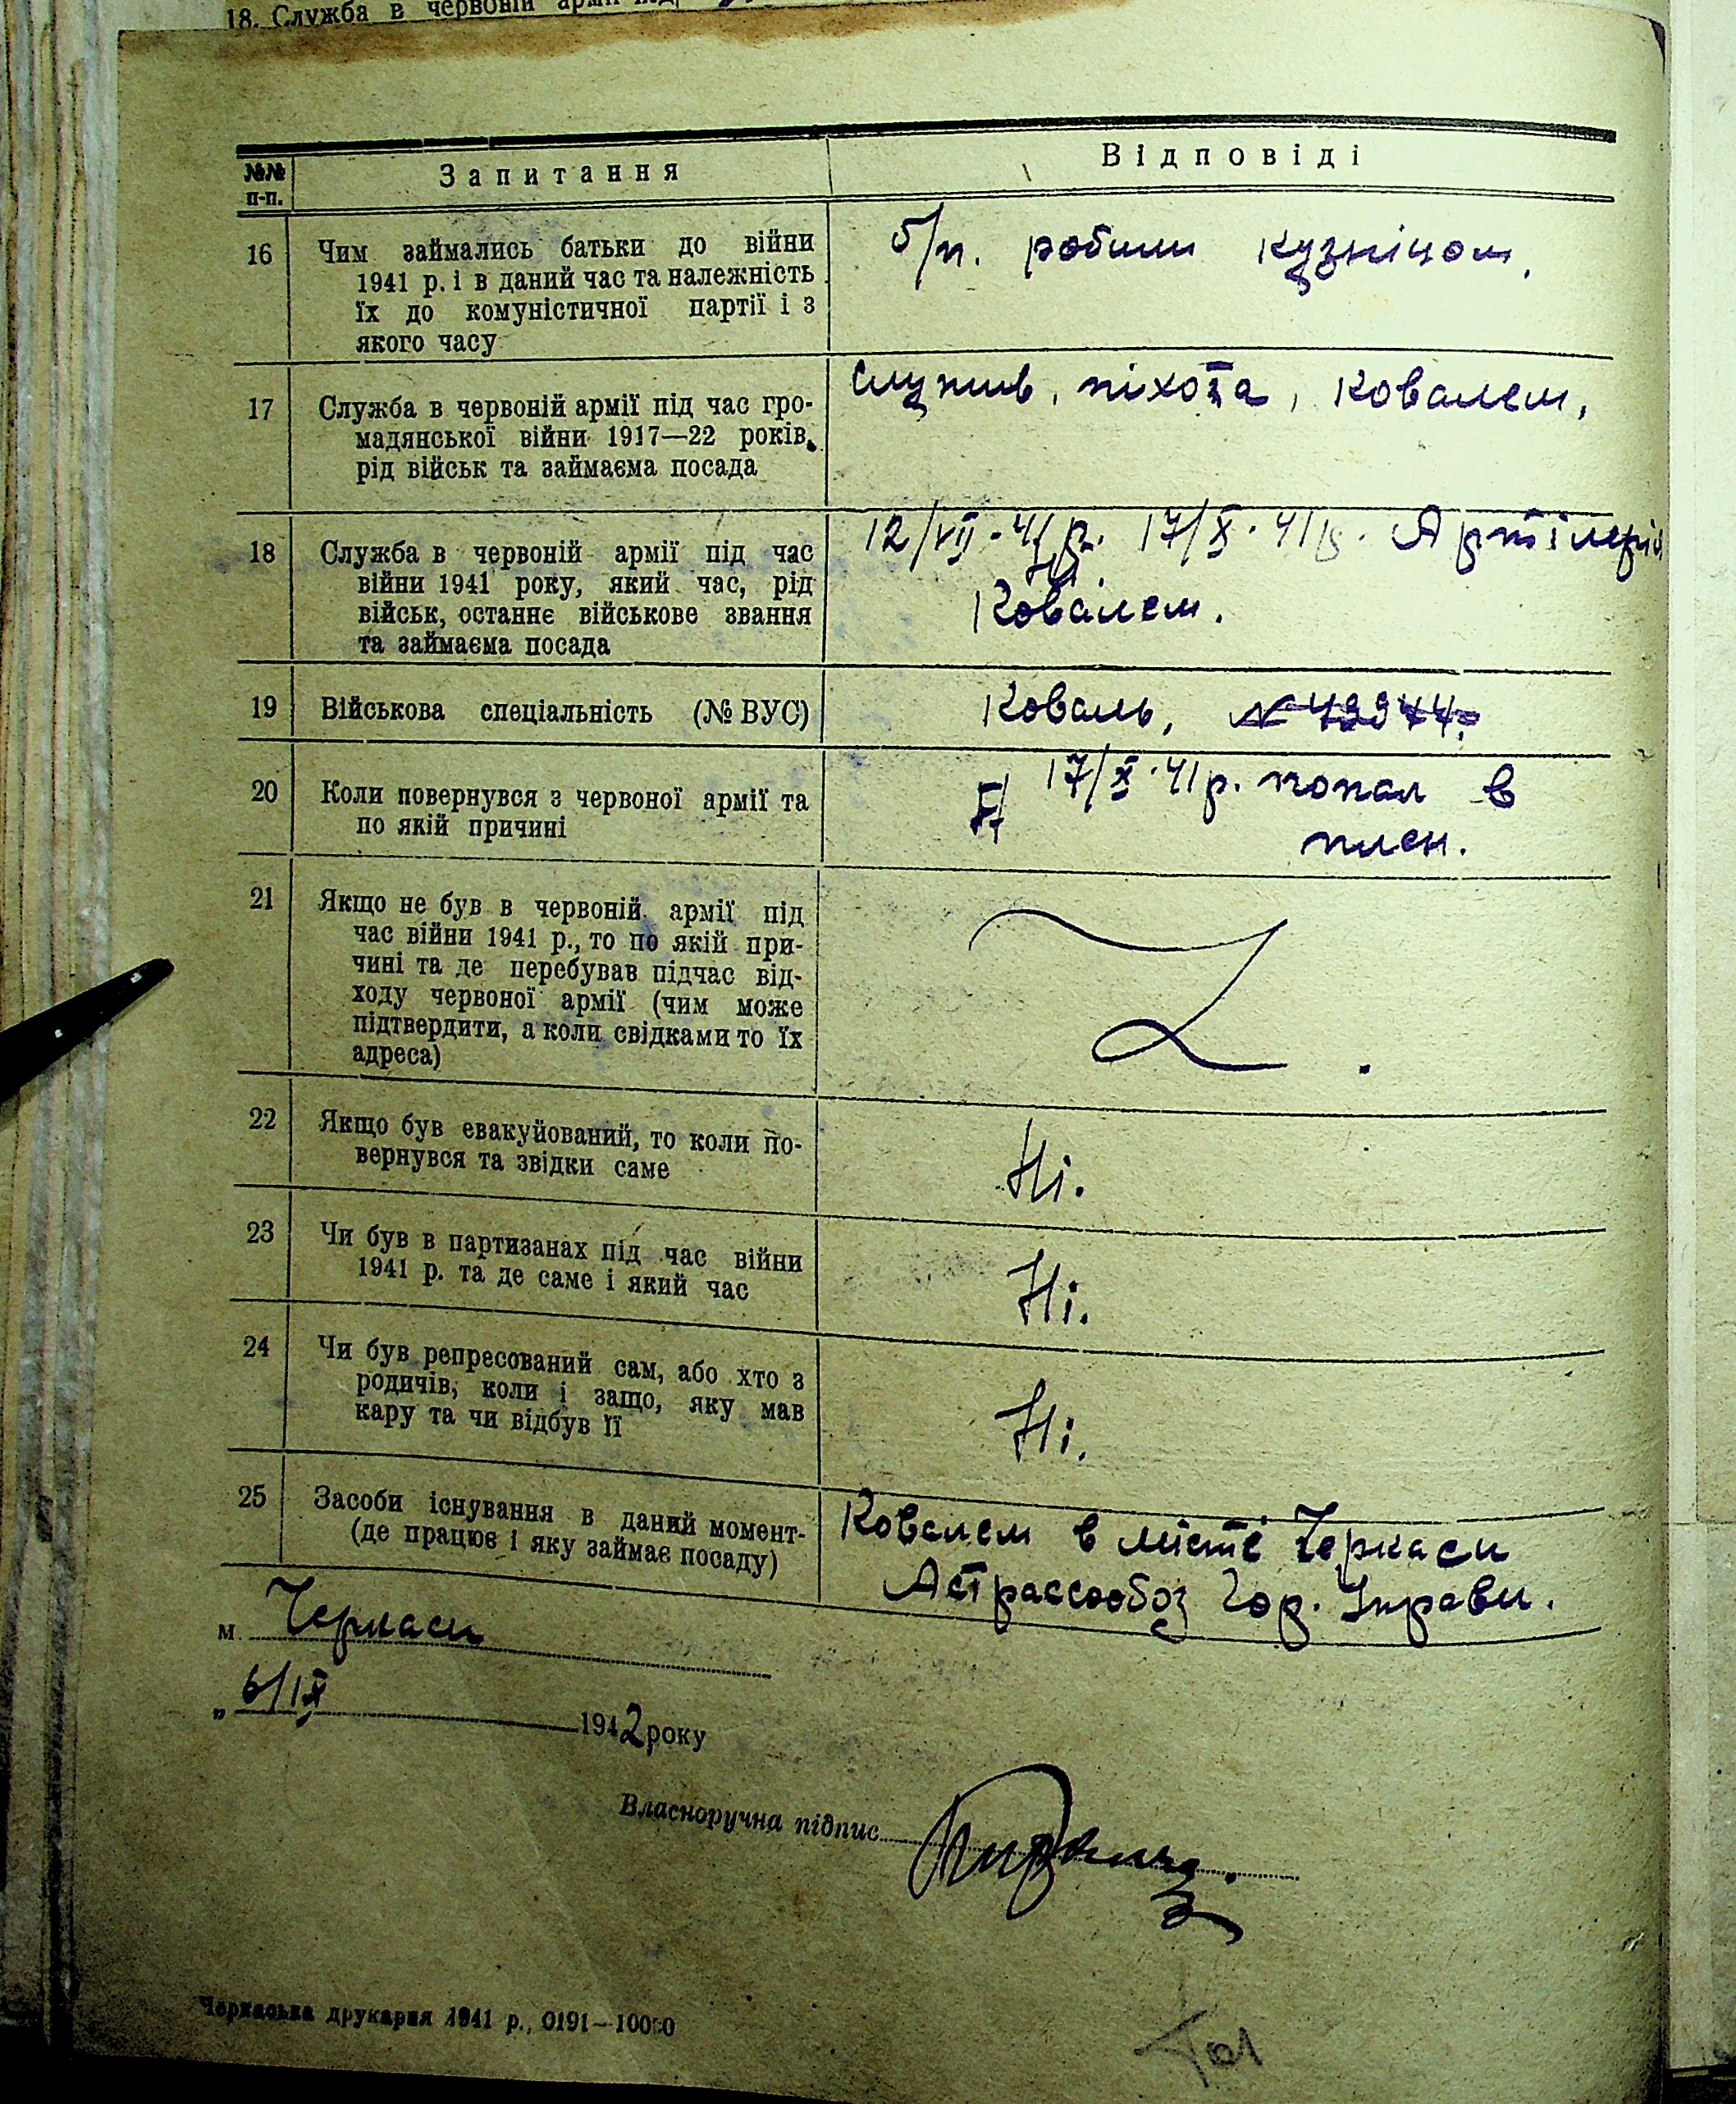 18. Служба в червоній армії під
№№ п-п.
Запитання
Відповіді
16
Чим займались батьки до війни
1941 р. і в даний час та належність
їх до комуністичної партії і з
якого часу
б/п. робили кузніцом.
17
Служба в червоній армії під час гро-
мадянської війни 1917—22 років,
рід військ та займаєма посада
Служив, піхота, Ковалем,
18
Служба в червоній армії під час
війни 1941 року, який час, рід
військ, останнє військове звання
та займаєма посада
12/VII-41р. 17/X-41р. Артілерія
Ковалем.
19
Військова спеціальність (№ ВУС)
Коваль,
20
Коли повернувся з червоної армії та
по якій причині
17/X-41р. попал в
плен.
21
Якщо не був в червоній армії під
час війни 1941 р., то по якій при-
чині та де перебував підчас від-
ходу червоної армії (чим може
підтвердити, а коли свідками то їх
адреса)
22
Якщо був евакуйований, то коли по-
вернувся та звідки саме
Ні.
23
Чи був в партизанах під час війни
1941 р. та де саме і який час
Ні.
24
Чи був репресований сам, або хто з
родичів, коли і защо, яку мав
кару та чи відбув її
Ні.
25
Засоби існування в даний момент-
(де працює і яку займає посаду)
Ковалем в місте Черкаси
Астрассообоз Гор. Управи.
м. Черкаси
„ 6/IX 1942 року
Власноручна підпис
Черкаська друкарня 1941 р., 0191—10000